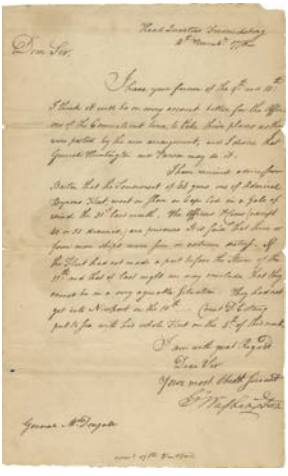 Head Quarters Fredericksburg
16th Novemr 1778
Dear Sir,
I have your favors of the 9th and 10th:
I think it will be on every account better for the Officers
of the Connecticut Line to take their places as they
were posted by the new arrangement, and I desire that
Generals Huntington and Parsons may do it.
I have received advice from
Boston that the Somerset of 64 guns, one of Admiral
Byrons Fleet went on shore on Cape Cod in a Gale of
wind the 31st last month. The Officers & Crew (except
40 or 50 drowned) are prisoners. It is said that three or
four more ships were seen in extreme distress. If
the Fleet had not made a port before the Storm of the
11th and that of last night we may conclude that they
cannot be in a very agreeable situation. They had not
got into Newport on the 10th. Count D'Estaing
put to Sea with his whole Fleet on the 4th of this month.
I am with great Regard
Dear Sir
Your most Obedt Servant
Go Washington
General McDougall